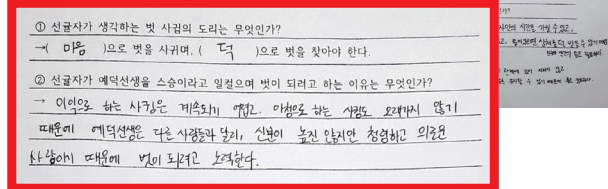 ① 선귤자가 생각하는 벗 사귐의 도리는 무엇인가?
→( 마음 )으로 벗을 사귀며, ( 덕 )으로 벗을 찾아야 한다.
② 선귤자가 예덕선생을 스승이라고 일컬으며 벗이 되려고 하는 이유는 무엇인가?
→ 이익으로 하는 사귐은 계속되기 어렵고. 아첨으로 하는 사귐도 오래가지 않기
때문에 예덕선생은 다른 사람들과 달리, 신분이 높진 않지만 청렴하고 의로운
사람이기 때문에 벗이 되려고 노력한다.